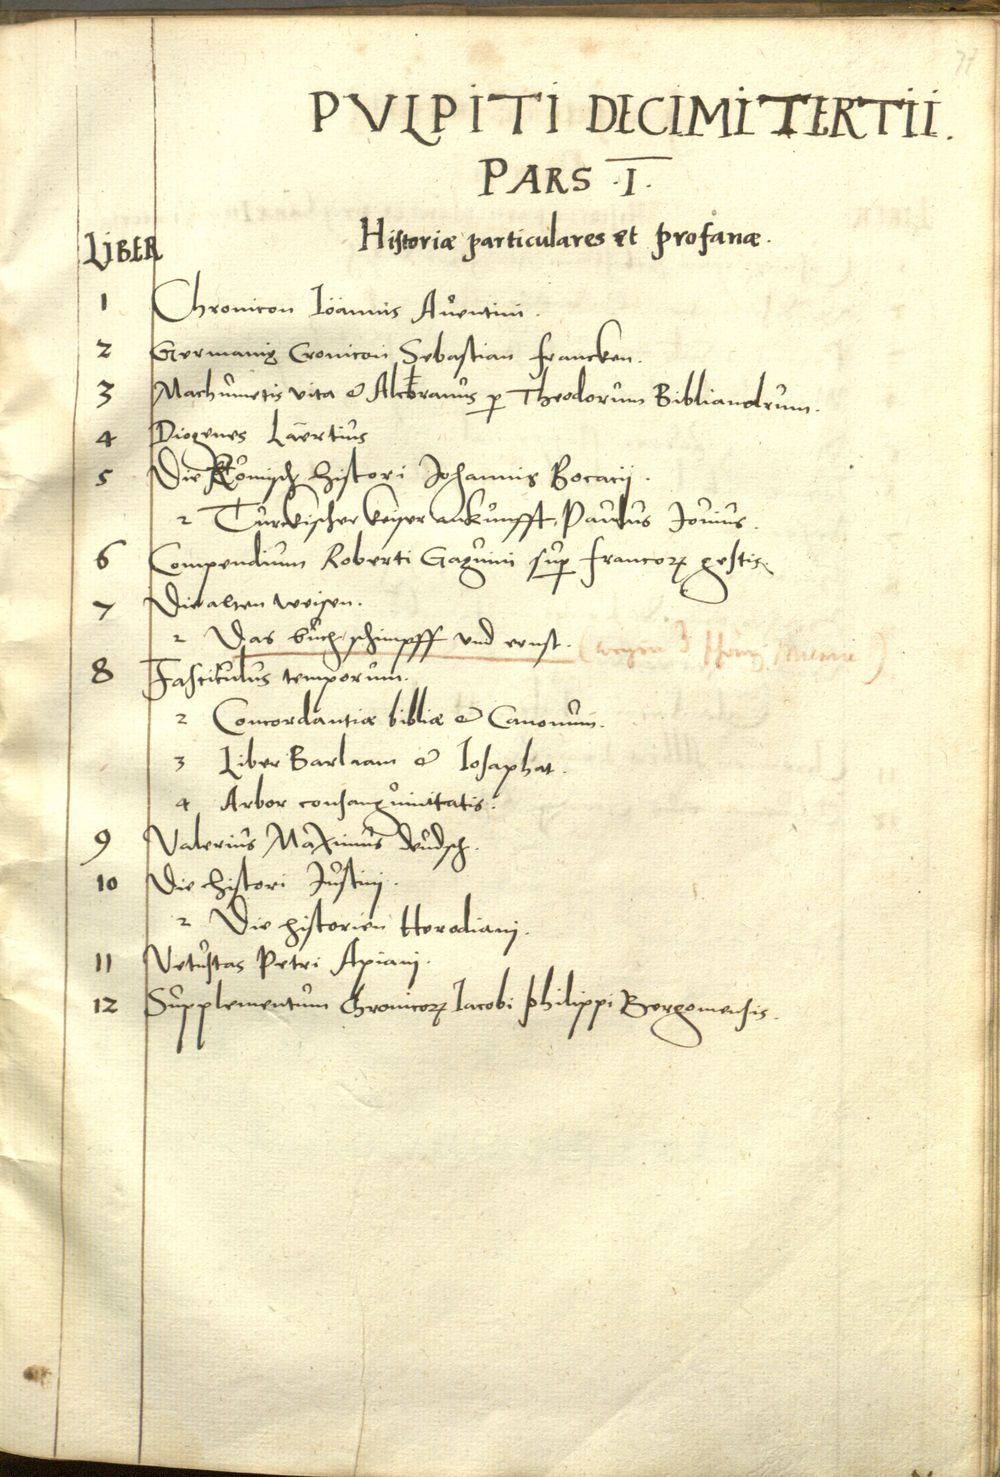 PVLPITI DECIMITERTII.
PARS .I.
Historiæ particulares et profanæ.
LIBER
1 Chronicon Ioannis Aventini.
2 Germaniæ Cronicon Sebastian Francken.
3 Machumetis vita & Alcoranus p Theodorum Bibliandrum.
4 Diogenes Laertius
5 Die Römisch histori Johannis Bocacij.
2 Turckischer keiser ankunfft, Paulus Jouius.
6 Compendium Roberti Gaguini sup francoꝝ gestis.
7 Die alten weisen.
2 Das bůch schimpff vnd ernst.
8 Fasciculus temporum.
2 Concordantiæ bibliæ & Canonum.
3 Liber Barlaam & Iosaphat.
4 Arbor consanguinitatis.
9 Valerius Maximus deudsch.
10 Die histori Justini.
2 Die historien Herodiani.
11 Vetustas Petri Apiani.
12 Supplementum Chronicoꝝ Iacobi philippi Bergomensis.